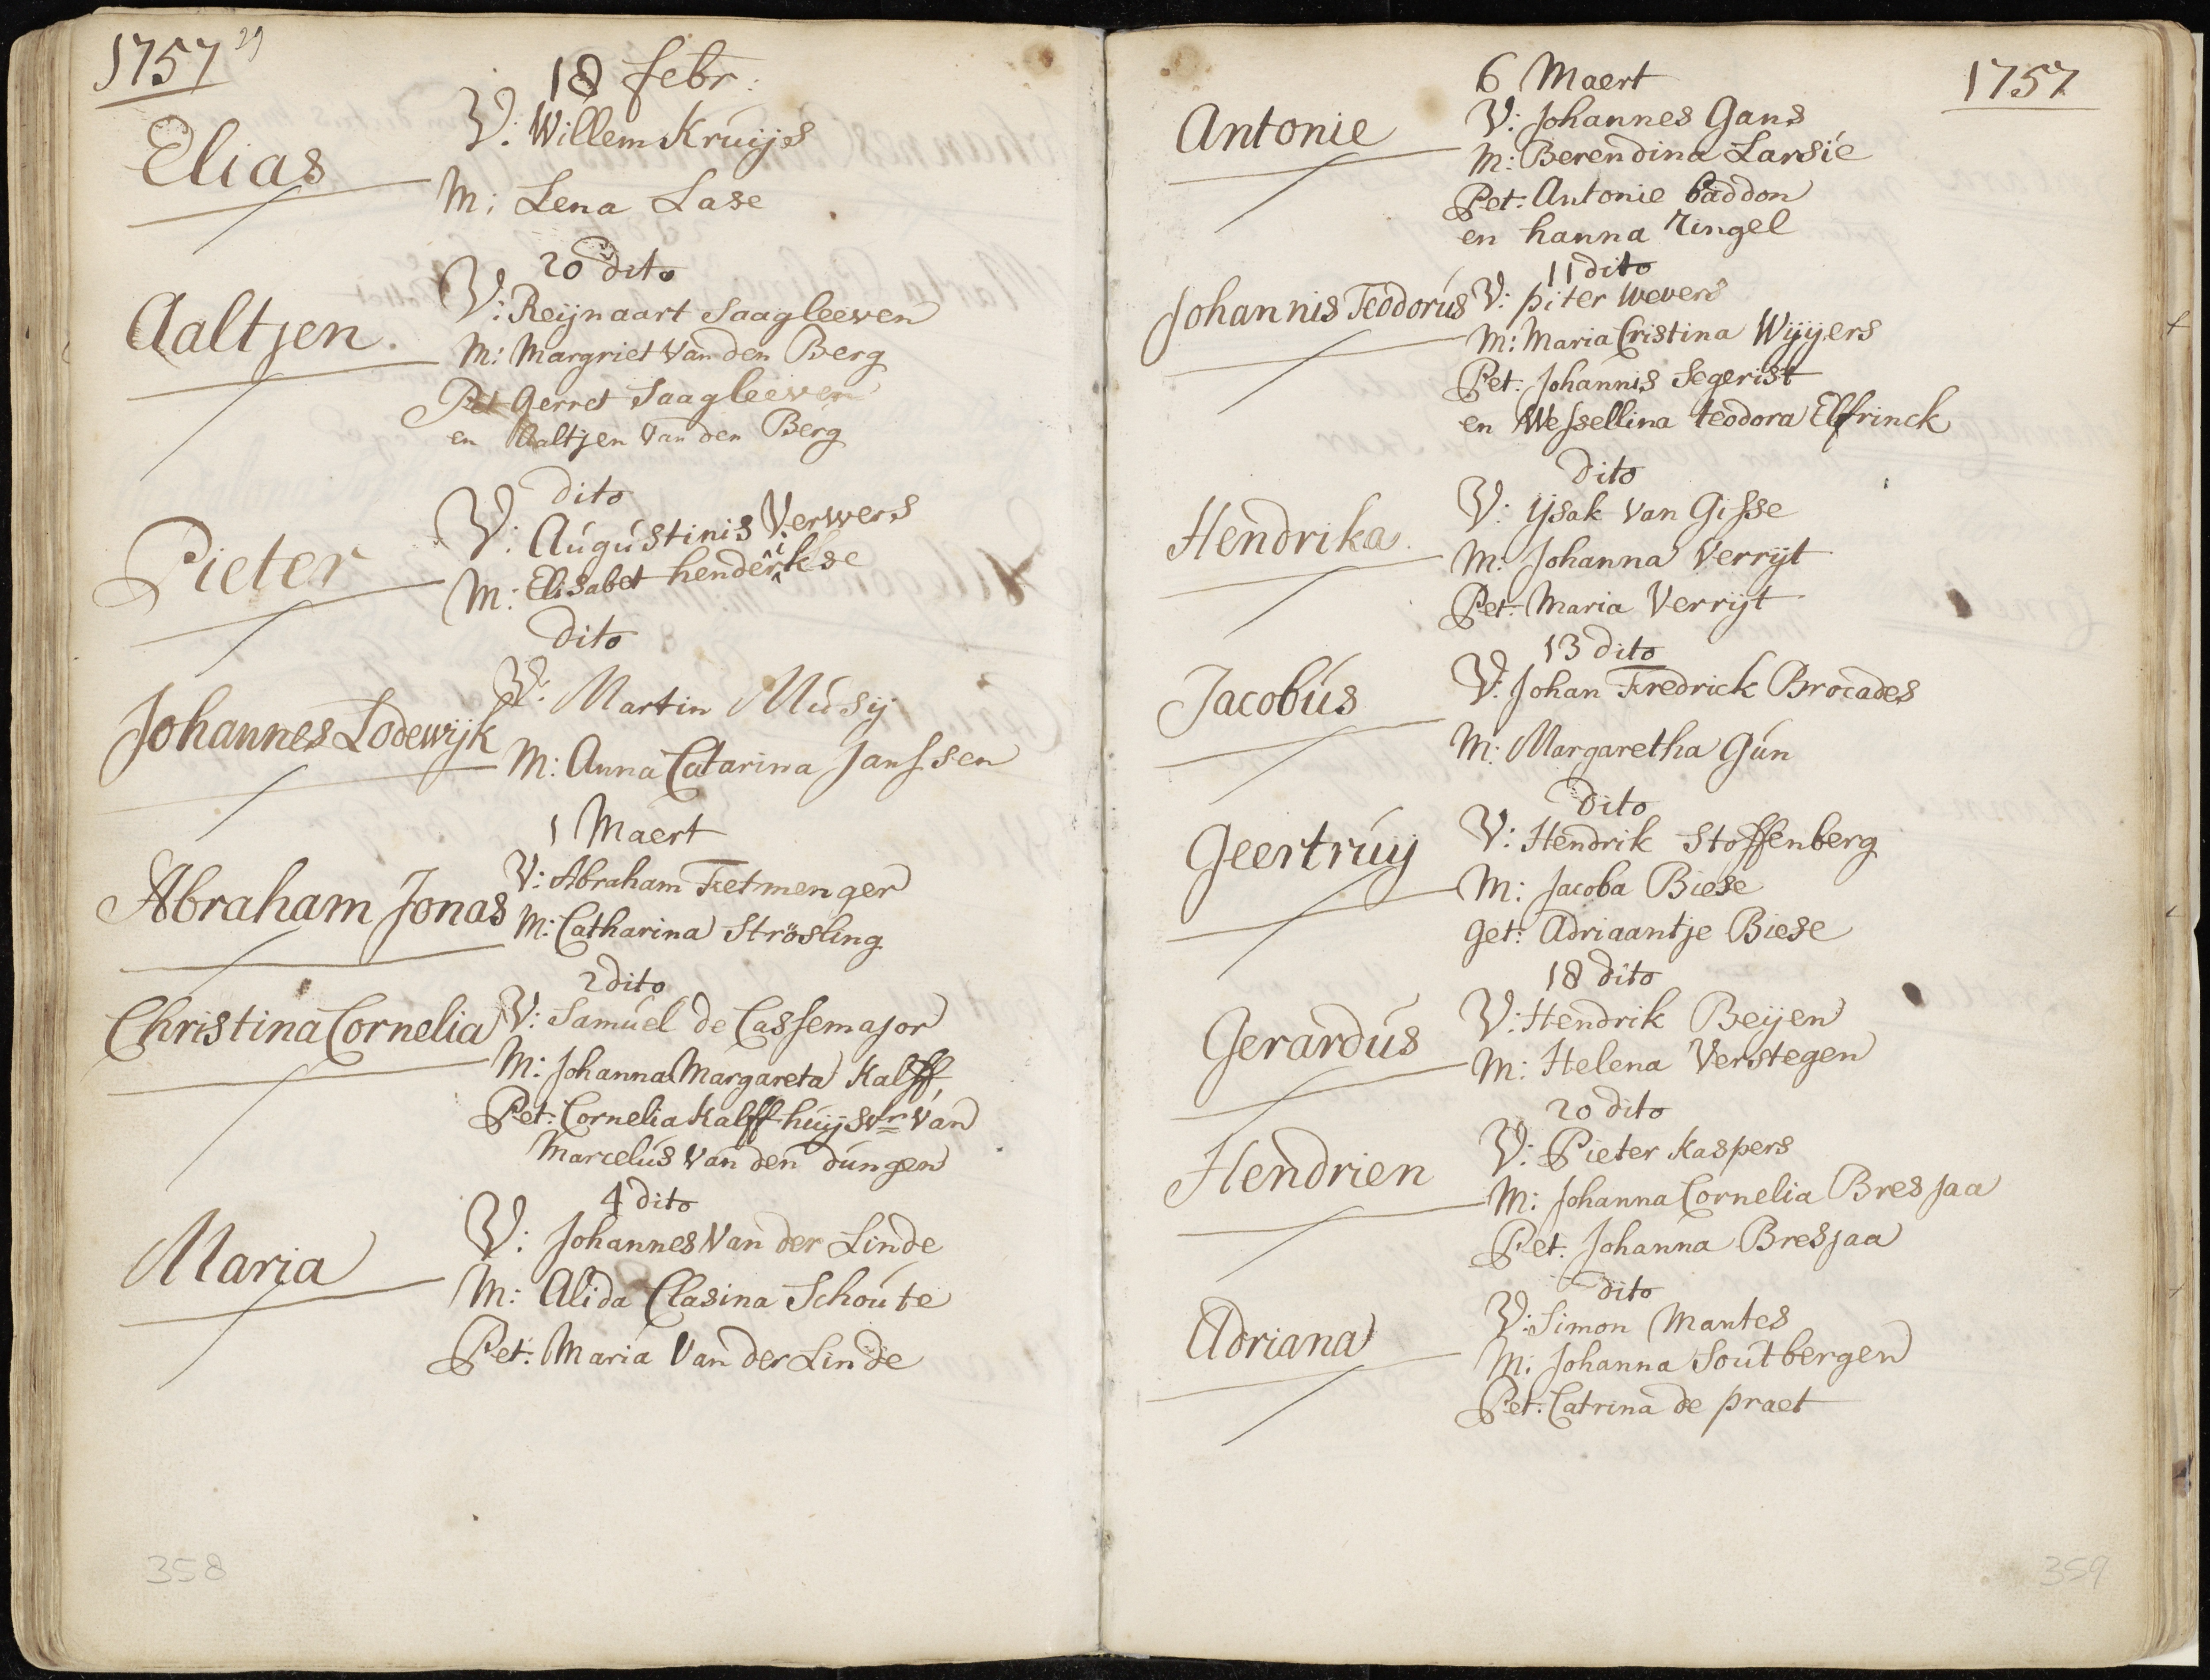 1757 29
18 febr:
Elias
V: Willem Kruijs
M: Lena Lase
20 dito
Aaltjen.
V: Reijnaart Saagleeven
M: Margriet Van den Berg
Pet Gerret Saagleeven
en Aaltjen Van den Berg
dito
Pieter
V: Augustinis Verwers
M: Elisabet henderikse
dito
Johannes Lodewijk
V: Martin Musij
M: Anna Catarina Janssen
1 Maert
Abraham Jonas
V: Abraham Fetmenger
M: Catharina Strösling
2 dito
Christina Cornelia
V: Samuel de Cassemajor
M: Johanna Margareta Kalff
Pet: Cornelia Kalff huijsvr Van
Marcelus Van den dungen
4 dito
Maria
V: Johannes Van der Linde
M: Alida Clasina Schoute
Pet: Maria Van der Linde
358
1757
6 Maert
Antonie
V: Johannes Gans
M: Berendina Larsie
Pet: Antonie baddon
en hanna Ringel
11 dito
Johannis Teodorus
V: piter Wevers
M: Maria Cristina Wijjers
Pet: Johannis Segerist
en Wessellina teodora Elfrinck
dito
Hendrika.
V: ijsak van Gisse
M: Johanna Verrijt
Pet: Maria Verrijt
13 dito
Jacobus
V: Johan Fredrick Brocades
M: Margaretha Gun
dito
Geertruij
V: Hendrik Stoffenberg
M: Jacoba Biese
Get: Adriaantje Biese
18 dito
Gerardus
V: Hendrik Beijen
M: Helena Verstegen
20 dito
Hendrien
V: Pieter Kaspers
M: Johanna Cornelia Bresjaa
Pet. Johanna Bresjaa
dito
Adriana
V: Simon Mantes
M: Johanna Soutbergen
Pet: Catrina de praet
359